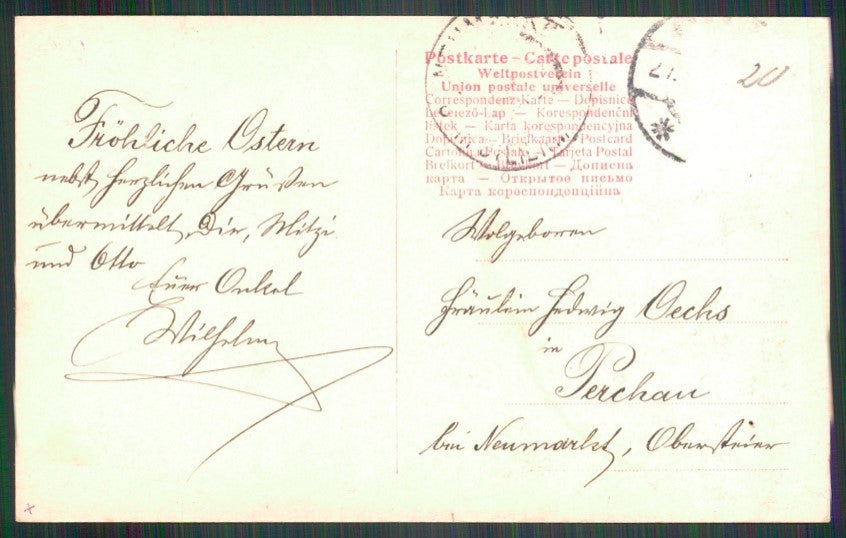 Fröhliche Ostern
nebst herzlichen Grüßen
übermittelt Dir, Mitzi
und Otto
Euer Onkel
Wilhelm
Postkarte – Carte postale
Weltpostverein
Union postale universelle
Correspondenz-Karte – Dopisnice
Levelező-Lap – Korespondenční
lístek – Karta korespondencyjna
Dopisnica – Briefkaart – Postcard
Cartolina Postale – Tarjeta Postal
Brefkort – – Дописна
карта – Открытое письмо
Карта кореспонденційна
20
Wolgeboren
Fräulein Hedwig Oechs
in
Perchau
bei Neumarkt, Obersteier